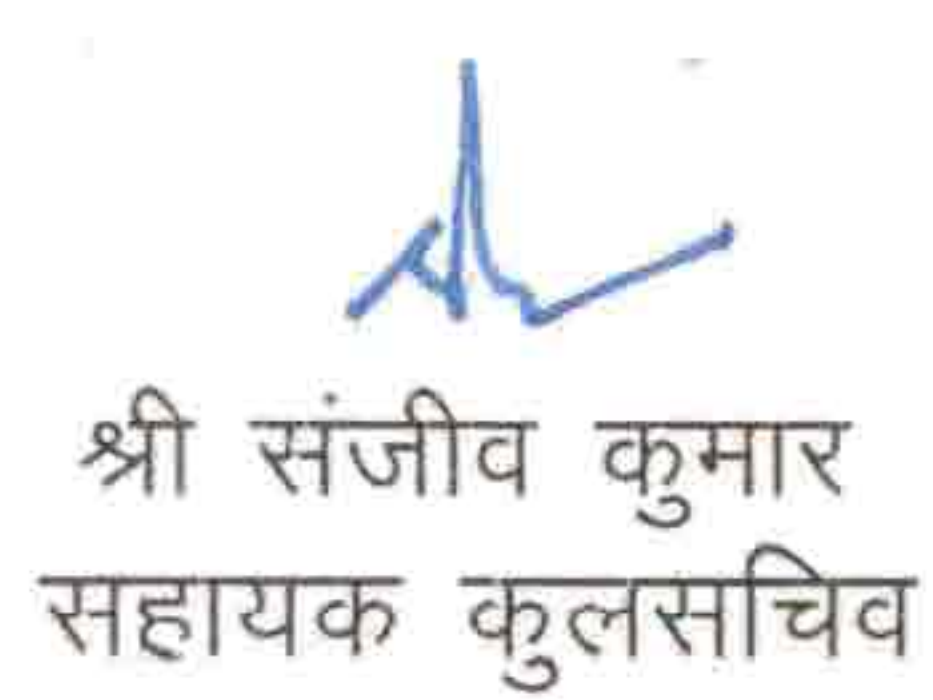 श्री संजीव कुमार
सहायक कुलसचिव